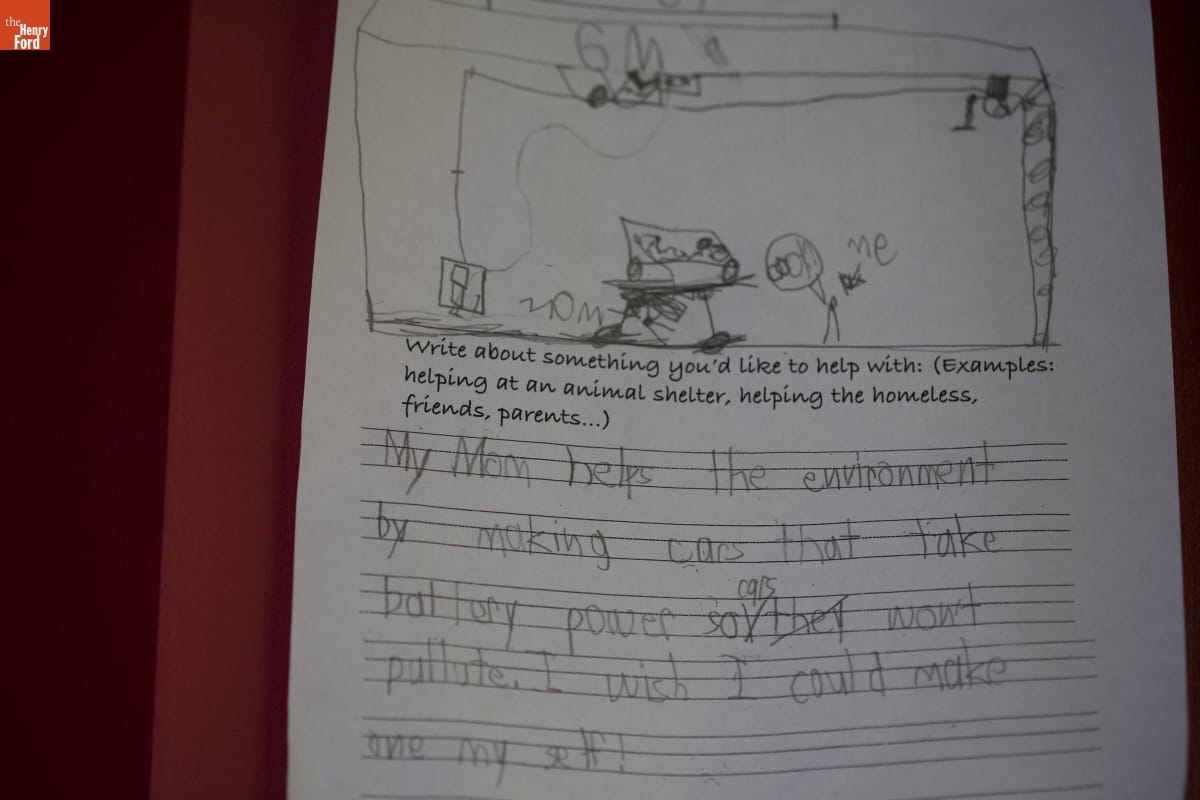 the
Henry
Ford
GM
me
Write about something you'd like to help with: (Examples:
helping at an animal shelter, helping the homeless,
friends, parents...)
My Mom helps the environment
by making cars that take
battory power so cars they wont
pullute. I wish I could make
one my self!